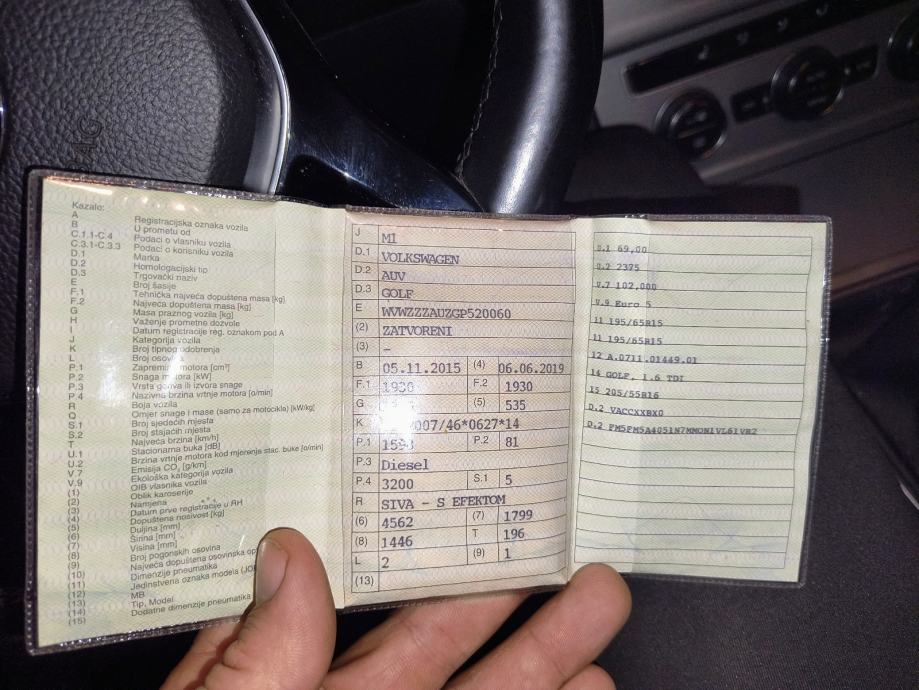 Kazalo:
A Registracijska oznaka vozila
B U prometu od
C.1.1-C.4 Podaci o vlasniku vozila
C.3.1-C.3.3 Podaci o korisniku vozila
D.1 Marka
D.2 Homologacijski tip
D.3 Trgovački naziv
E Broj šasije
F.1 Tehnička najveća dopuštena masa [kg]
F.2 Najveća dopuštena masa [kg]
G Masa praznog vozila [kg]
H Važenje prometne dozvole
I Datum registracije reg. oznakom pod A
J Kategorija vozila
K Broj tipnog odobrenja
L Broj osovina
P.1 Zapremina motora [cm³]
P.2 Snaga motora [kW]
P.3 Vrsta goriva ili izvora snage
P.4 Nazivna brzina vrtnje motora [o/min]
R Boja vozila
Q Omjer snage i mase (samo za motocikle) [kW/kg]
S.1 Broj sjedaćih mjesta
S.2 Broj stajaćih mjesta
T Najveća brzina [km/h]
U.1 Stacionarna buka [dB]
U.2 Brzina vrtnje motora kod mjerenje stac. buke [o/min]
V.7 Emisija CO₂ [g/km]
V.9 Ekološka kategorija vozila
(1) OIB vlasnika vozila
(2) Oblik karoserije
(3) Namjena
(4) Datum prve registracije u RH
(5) Dopuštena nosivost [kg]
(6) Duljina [mm]
(7) Širina [mm]
(8) Visina [mm]
(9) Broj pogonskih osovina
(10) Najveća dopuštena osovinska
(11) Dimenzije pneumatika
(12) Jedinstvena oznaka modela
(13) MB
(14) Tip, Model
(15) Dodatne dimenzije pneumatika
J M1
D.1 VOLKSWAGEN
D.2 AUV
D.3 GOLF
E WVWZZZAUZGP520060
(2) ZATVORENI
(3) –
B 05.11.2015 (4) 06.06.2019
F.1 1930 F.2 1930
G (5) 535
K 007/46*0627*14
P.1 1598 P.2 81
P.3 Diesel
P.4 3200 S.1 5
R SIVA - S EFEKTOM
(6) 4562 (7) 1799
(8) 1446 T 196
L 2 (9) 1
(13)
U.1 69,00
U.2 2375
V.7 102,000
V.9 Euro 5
11 195/65R15
11 195/65R15
12 A.0711.01449.01
14 GOLF, 1.6 TDI
15 205/55R16
D.2 VACCXXBX0
D.2